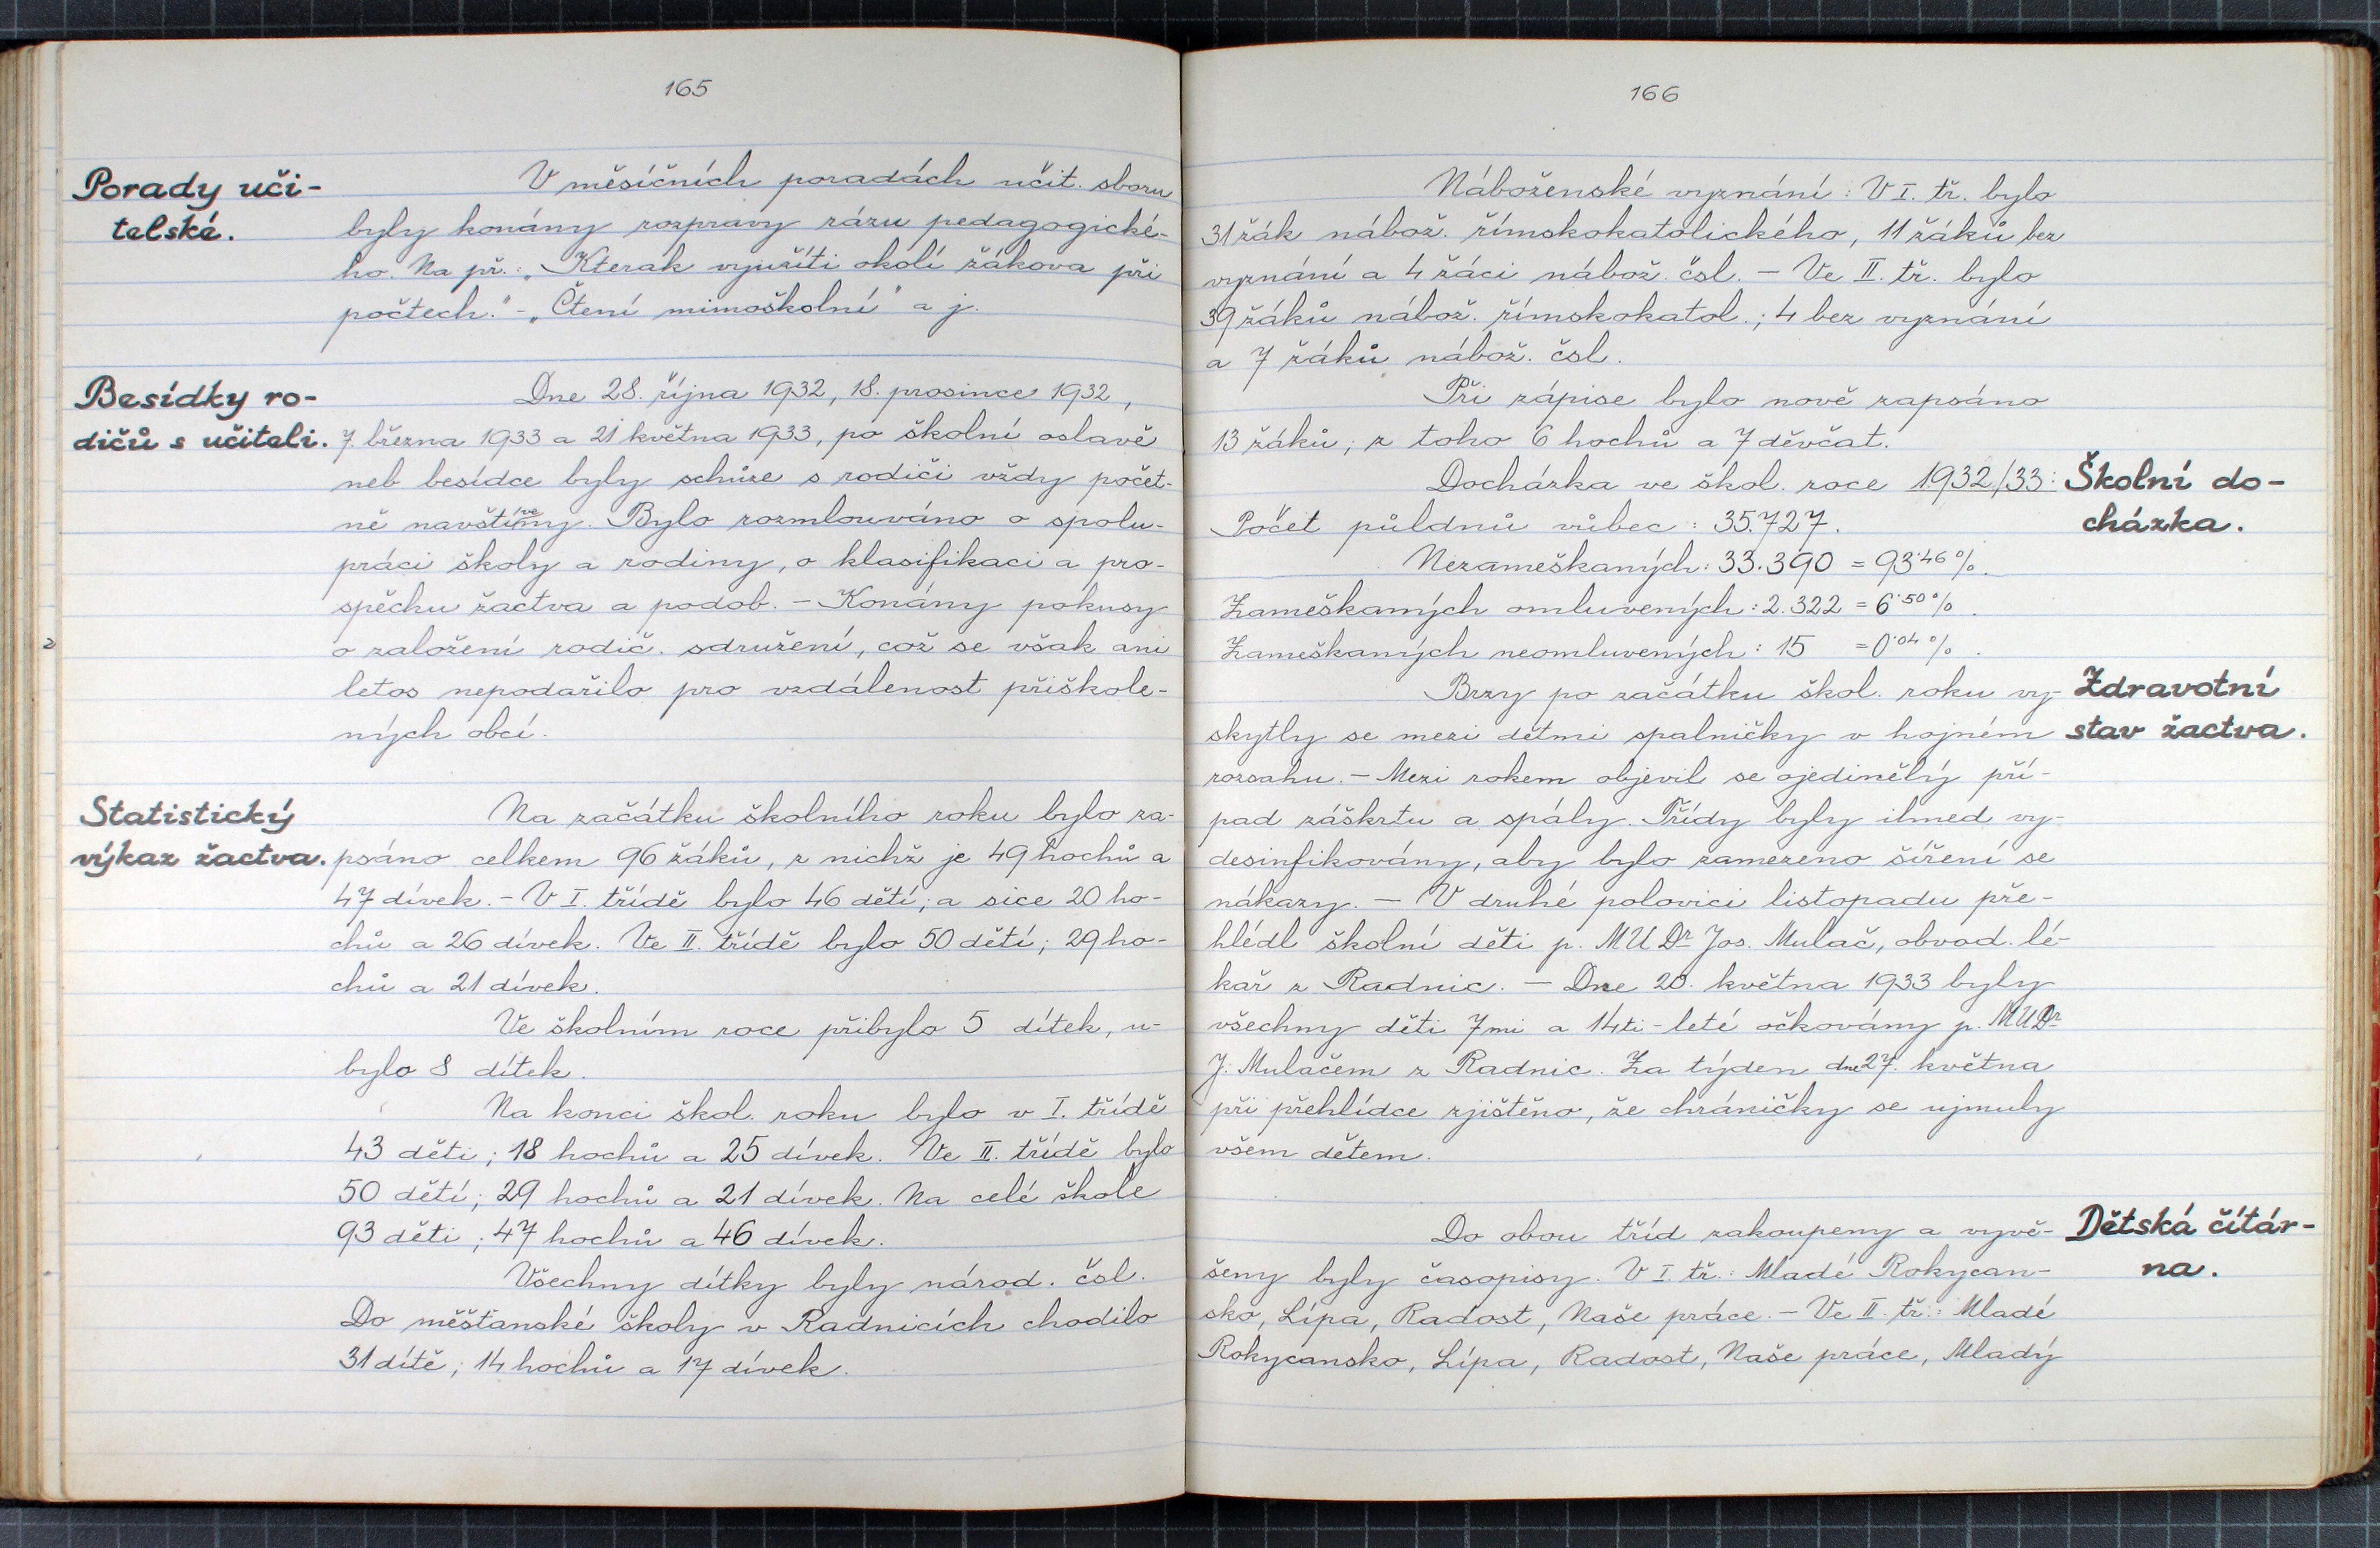 165
Porady uči-
telské.
V měsíčních poradách učit. sboru
byly konány rozpravy rázu pedagogické-
ho. Na př.: „Kterak využíti okolí žákova při
počtech." - „Čtení mimoškolní" a j.
Besídky ro-
dičů s učiteli.
Dne 28. října 1932, 18. prosince 1932,
7. března 1933 a 21 května 1933, po školní oslavě
neb besídce byly schůze s rodiči vždy počet-
ně navštíveny. Bylo rozmlouváno o spolu-
práci školy a rodiny, o klasifikaci a pro-
spěchu žactva a podob. – Konány pokusy
o založení rodič. sdružení, což se však ani
letos nepodařilo pro vzdálenost přiškole-
ných obcí.
Statistický
výkaz žactva.
Na začátku školního roku bylo za-
psáno celkem 96 žáků, z nichž je 49 hochů a
47 dívek. – V I. třídě bylo 46 dětí; a sice 20 ho-
chů a 26 dívek. Ve II. třídě bylo 50 dětí; 29 ho-
chů a 21 dívek.
Ve školním roce přibylo 5 dítek, u-
bylo 8 dítek.
Na konci škol. roku bylo v I. třídě
43 děti; 18 hochů a 25 dívek. Ve II. třídě bylo
50 dětí; 29 hochů a 21 dívek. Na celé škole
93 děti; 47 hochů a 46 dívek.
Všechny dítky byly národ. čsl.
Do měšťanské školy v Radnicích chodilo
31 dítě; 14 hochů a 17 dívek.
166
Náboženské vyznání: V I. tř. bylo
31 žák nábož. římskokatolického, 11 žáků bez
vyznání a 4 žáci nábož. čsl. – Ve II. tř. bylo
39 žáků nábož. římskokatol.; 4 bez vyznání
a 7 žáků nábož. čsl.
Při zápise bylo nově zapsáno
13 žáků; z toho 6 hochů a 7 děvčat.
Docházka ve škol. roce 1932/33:
Školní do-
cházka.
Počet půldnů vůbec: 35.727.
Nezameškaných: 33.390 = 93·46%.
Zameškaných omluvených: 2.322 = 6·50%.
Zameškaných neomluvených: 15 = 0·04%.
Brzy po začátku škol. roku vy-
Zdravotní
stav žactva.
skytly se mezi dětmi spalničky v hojném
rozsahu. – Mezi rokem objevil se ojedinělý pří-
pad záškrtu a spály. Třídy byly ihned vy-
desinfikovány, aby bylo zamezeno šíření se
nákazy. – V druhé polovici listopadu pře-
hlédl školní děti p. MUDr Jos. Mulač, obvod. lé-
kař z Radnic. – Dne 20. května 1933 byly
všechny děti 7mi a 14ti-leté očkovány p. MUDr
J. Mulačem z Radnic. Za týden dne 27. května
při přehlídce zjištěno, že chráničky se ujmuly
všem dětem.
Do obou tříd zakoupeny a vyvě-
Dětská čítár-
na.
šeny byly časopisy. V I. tř.: Mladé Rokycan-
sko, Lípa, Radost, Naše práce. – Ve II. tř.: Mladé
Rokycansko, Lípa, Radost, Naše práce, Mladý